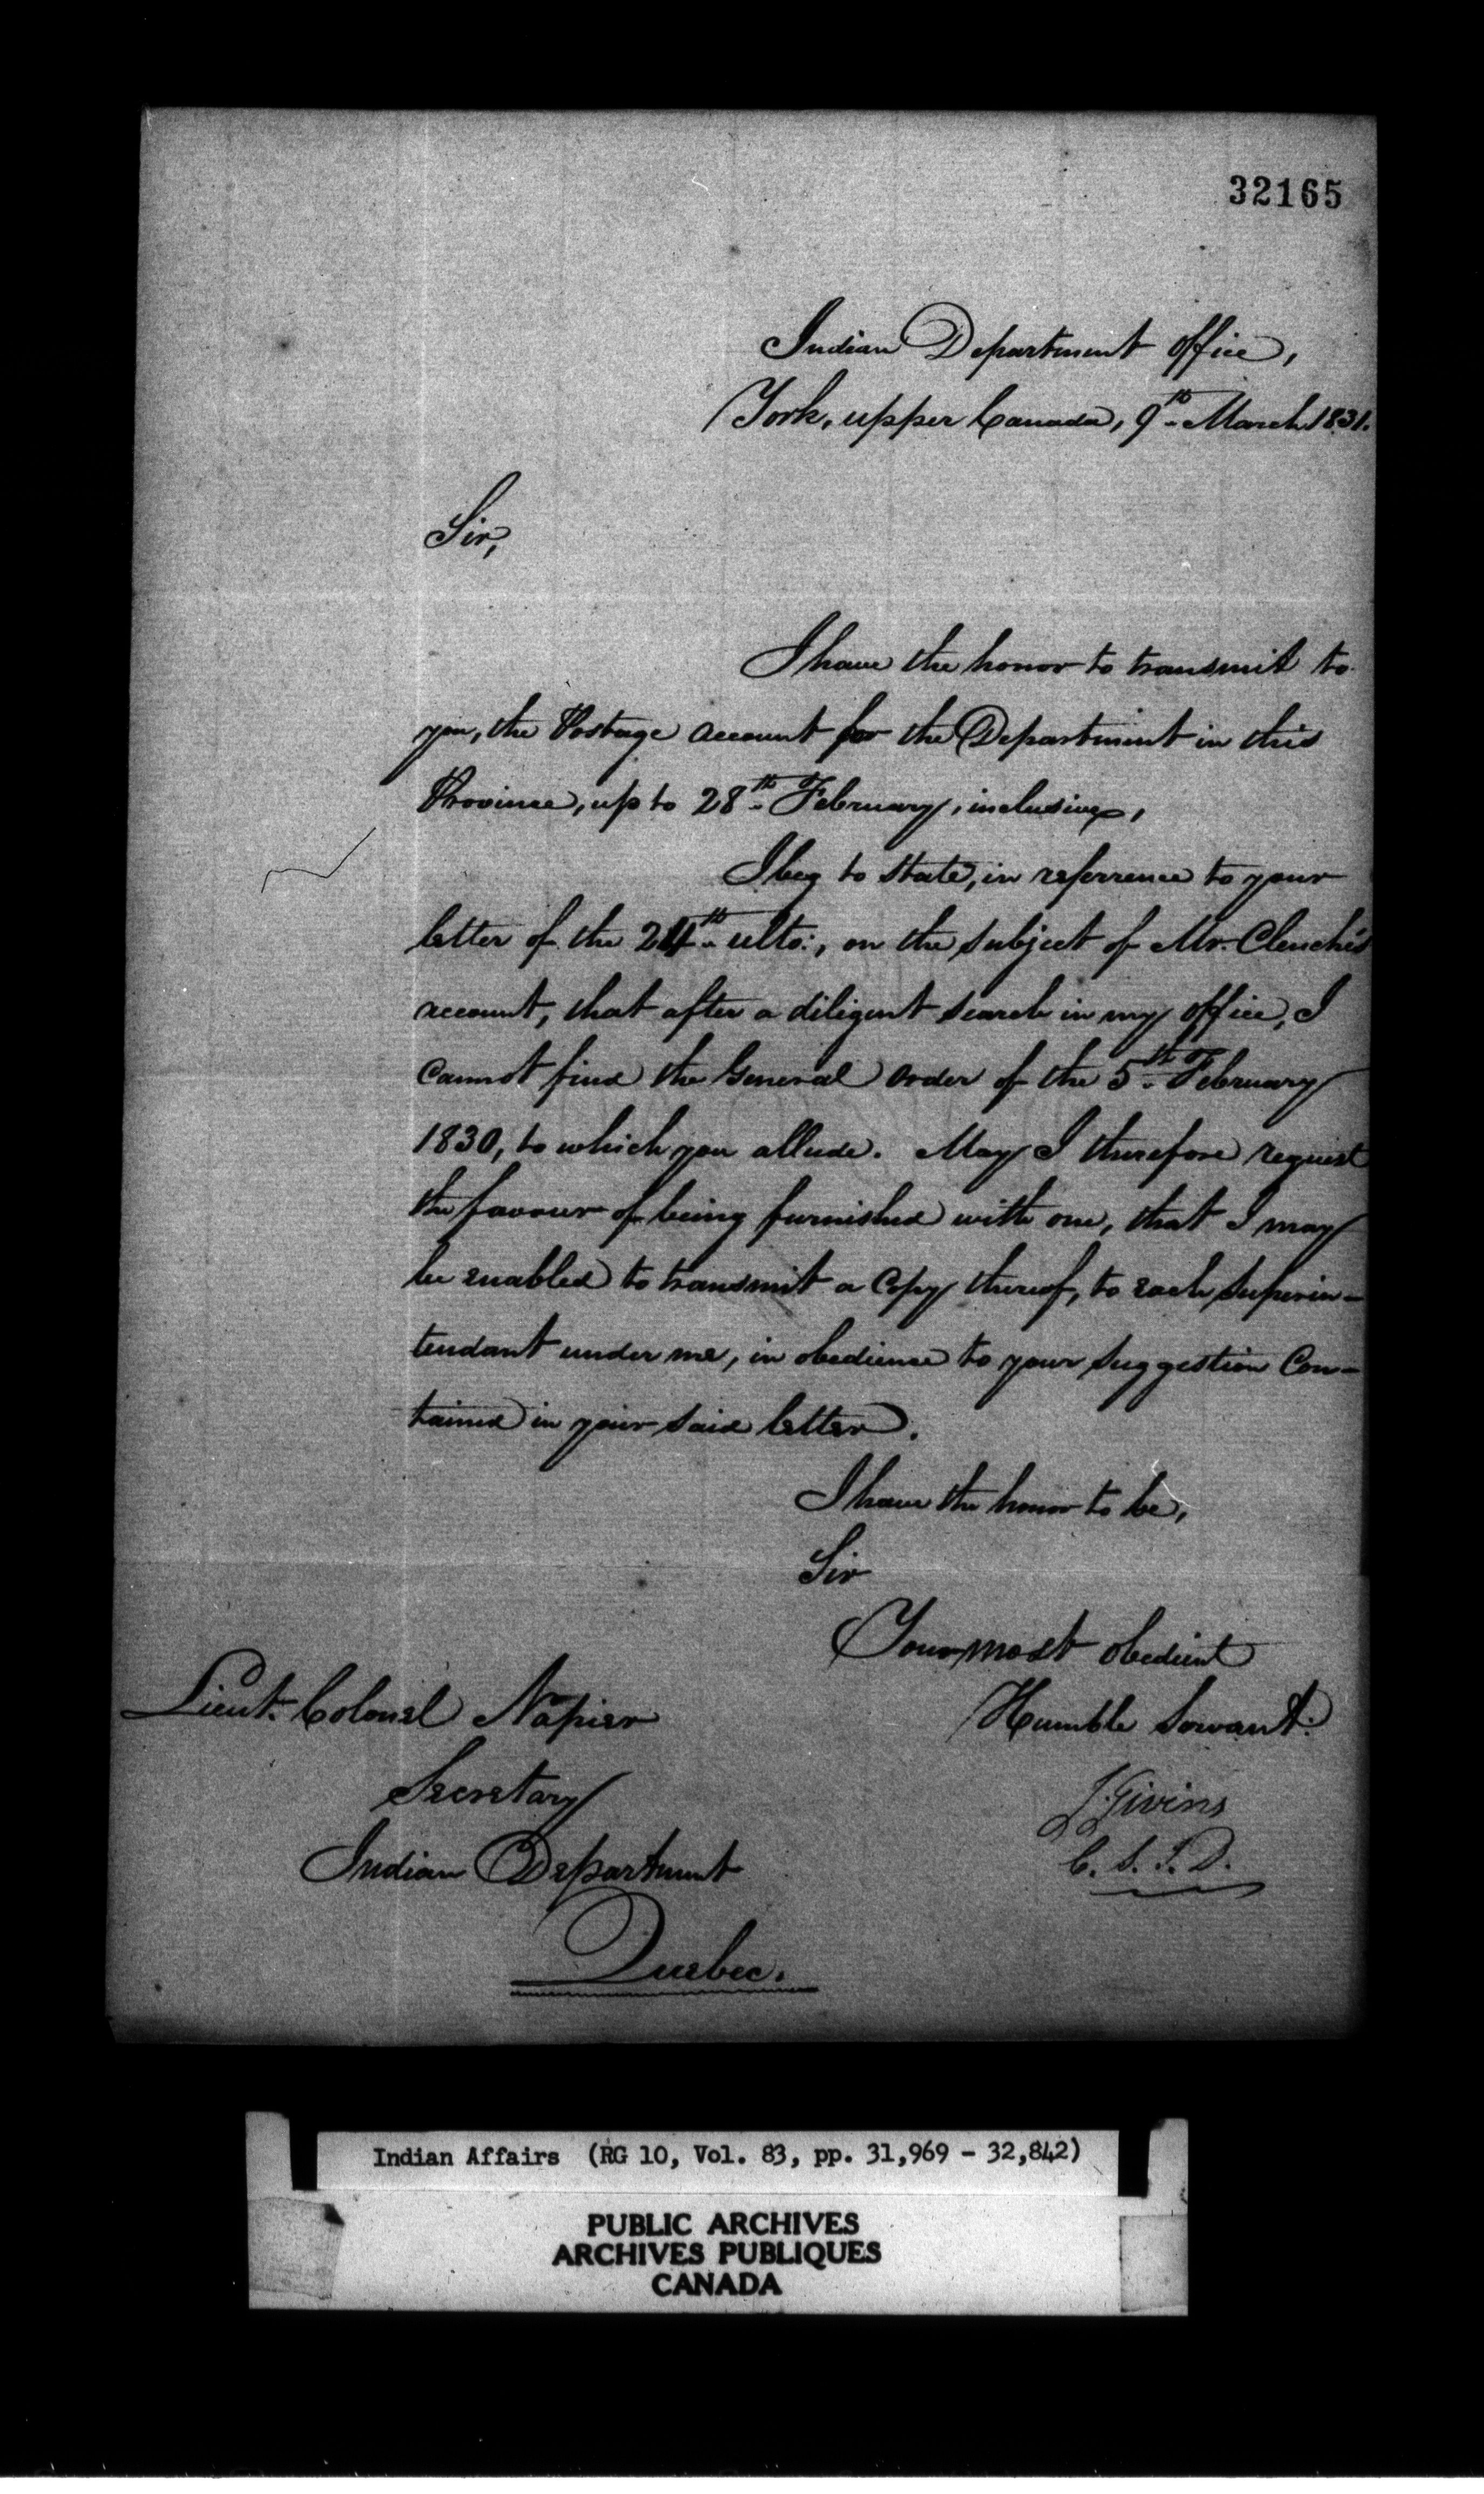 32165
Indian Department office,
York, upper Canada, 9th March 1831.
Sir,
I have the honor to transmit to
you, the Postage account for the Department in this
Province, up to 28th February, inclusive,
I beg to state, in referrence to your
letter of the 24th ulto:, on the subject of Mr. Clench's
account, that after a diligent search in my office, I
cannot find the General order of the 5th February
1830, to which you allude. May I therefore request
the favour of being furnished with one, that I may
be enabled to transmit a Copy thereof, to each Superin-
tendant under me, in obedience to your suggestion Con-
tained in your said letter.
I have the honor to be,
Sir
Your most obedient
Humble Servant.
J Givins
C. S. I. D.
Lieut. Colonel Napier
Secretary
Indian Department
Quebec.
Indian Affairs (RG 10, Vol. 83, pp. 31,969 - 32,842)
PUBLIC ARCHIVES
ARCHIVES PUBLIQUES
CANADA